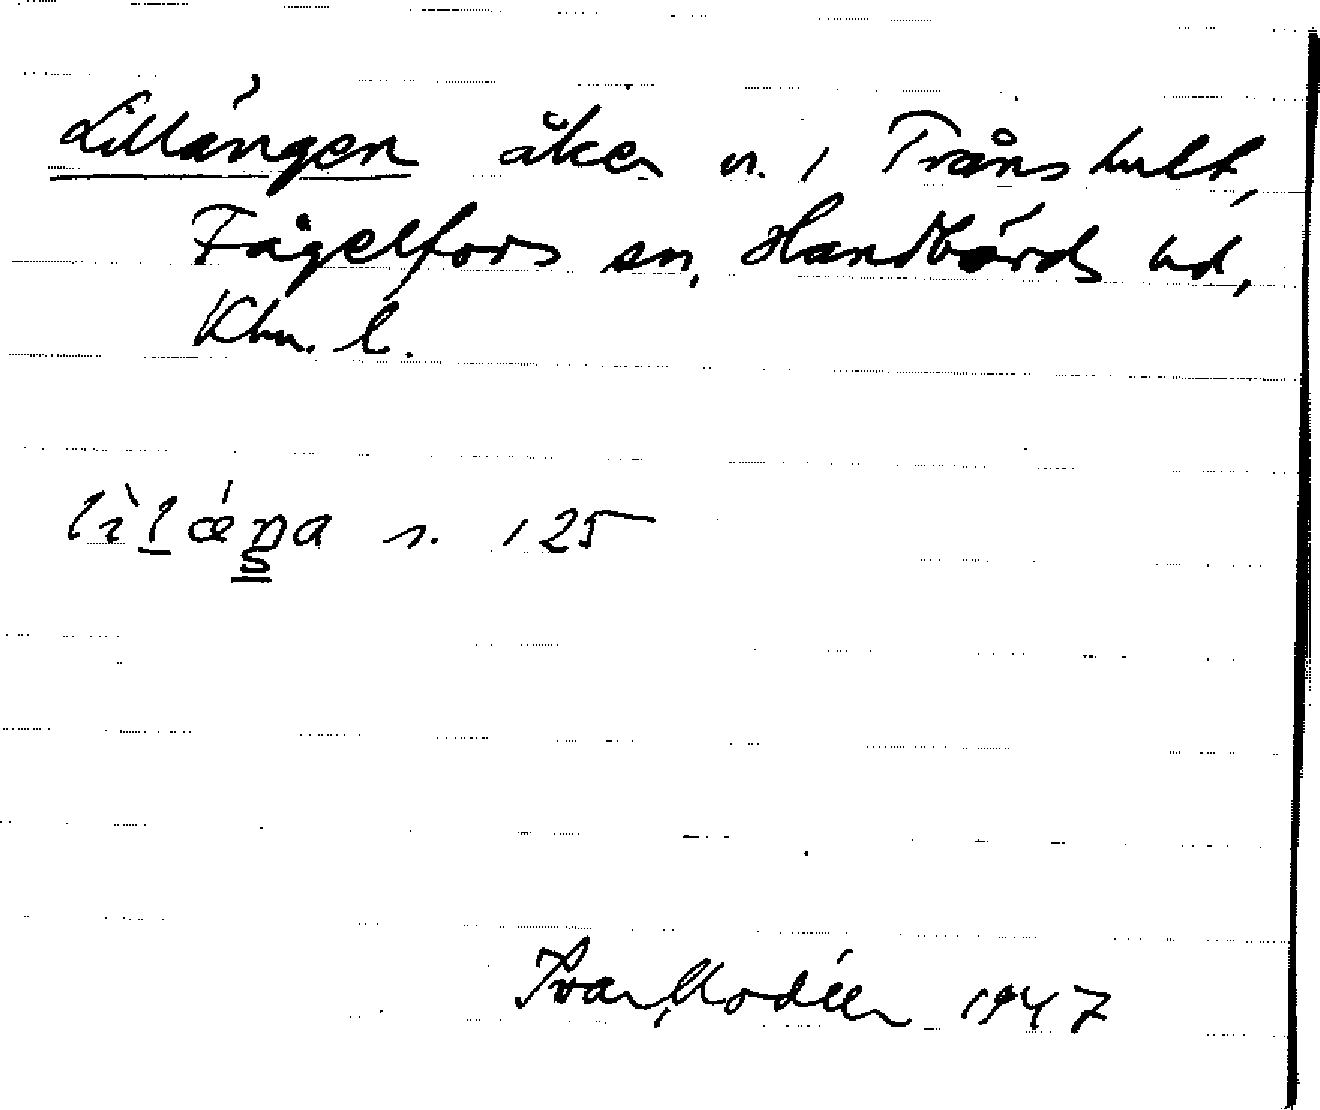 Lillängen åker n. i Trånshult,
Fågelfors sn, Handbörds hd,
Klm. l.
lìlæ´ŋa s. 125
Ivar Modéer 1947